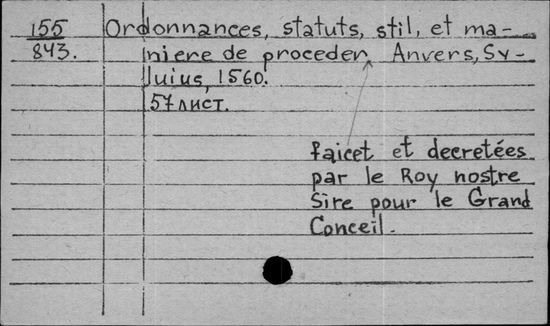 155 Ordonnances, statuts, stil, et ma-
843. niere de proceder Anvers, Sy-
luius, 1560.
57 лист.
faicet et decretées
par le Roy nostre
Sire pour le Grand
Conceil.